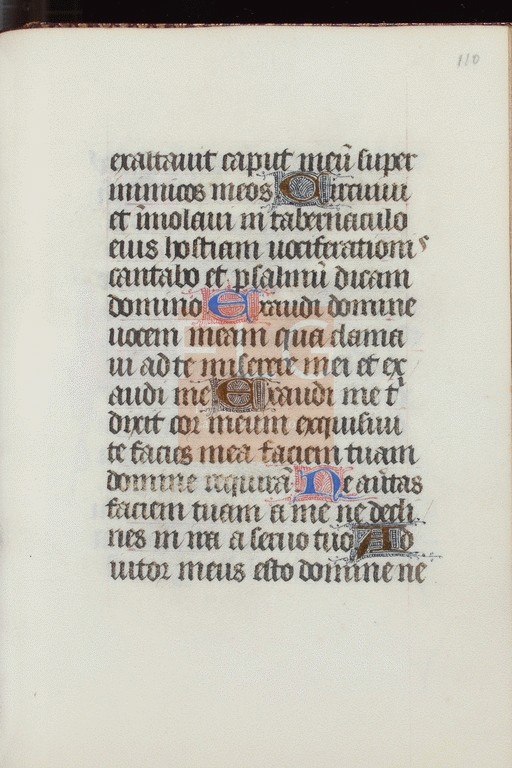 110
exaltauit caput meū super
inimicos meos Circuiui
et īmolaui in tabernaculo
eius hostiam uociferationis
cantabo et psalmū dicam
domino Exaudi domine
uocem meam qua clama
ui ad te miserere mei et ex
audi me Exaudi me t'
dixit cor meum exquisiui
te facies mea faciem tuam
domine requirā Ne auertas
faciem tuam a me ne decli
nes in ira a seruo tuo Ad
iutor meus esto domine ne